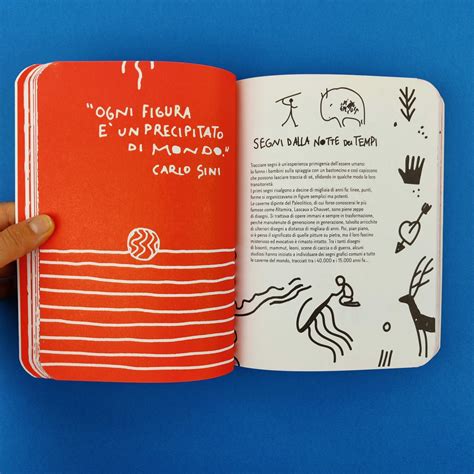 "OGNI FIGURA
E' UN PRECIPITATO
DI MONDO."
CARLO SINI
SEGNI DALLA NOTTE DEI TEMPI
Tracciare segni è un'esperienza primigenia dell'essere umano:
lo fanno i bambini sulla spiaggia con un bastoncino e così capiscono
che possono lasciare traccia di sé, sfidando in qualche modo la loro
transitorietà.
I primi segni risalgono a decine di migliaia di anni fa: linee, punti,
farmer si organizzavano in figure semplici ma potenti.
Le caverne dipinte del Paleolitico, di cui forse conoscerai le più
famose come Altamira, Lascaux o Chauvet, sono piene zeppe
di disegni. Si tratta di opere rimaste sempre in trasformazione,
perché manutenute di generazione in generazione, talvolta arricchite
di ulteriori disegni a distanza di migliaia di anni. Poi, pian piano,
si è perso il significato di quelle pitture su pietra, ma il loro fascino
misterioso ed evocativo è rimasto intatto. Tra i tanti disegni
di bisonti, mammut, leoni, scene di caccia o di guerra, alcuni
studiosi hanno iniziato a individuare dei segni grafici comuni a tutte
le caverne del mondo, tracciati tra i 40.000 e i 15.000 anni fa...